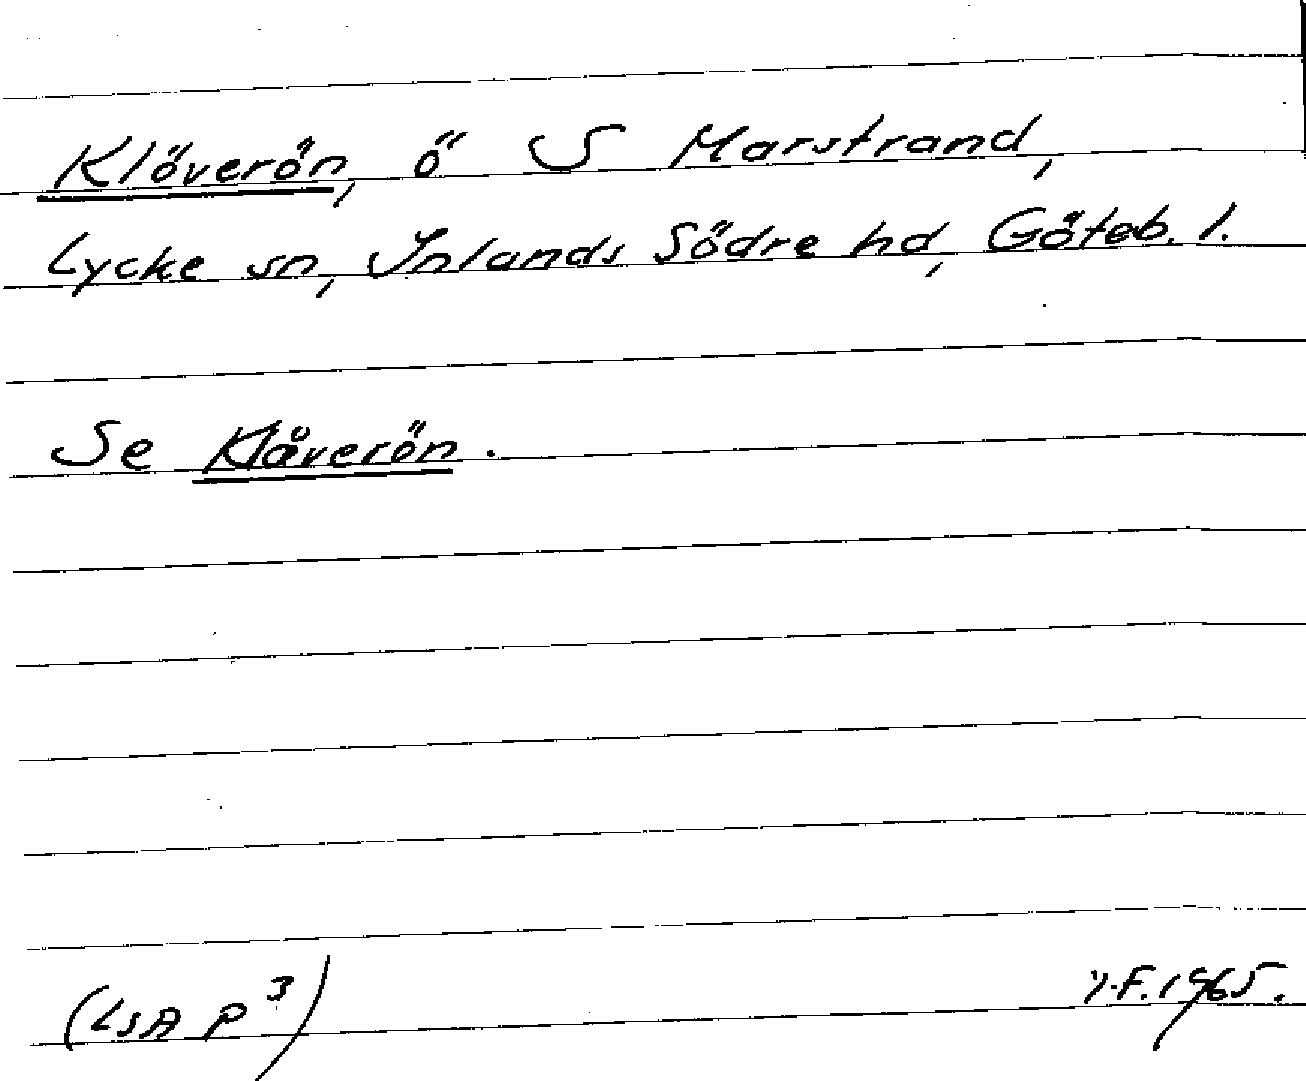 Klöverön, ö S Marstrand,
Lycke sn, Inlands Södre hd, Göteb. l.
Se Klåverön.
(LSA P³)
F. 1965.